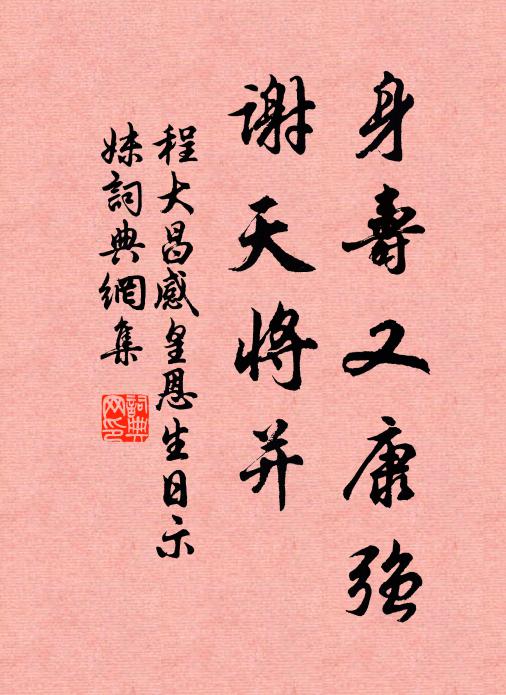 身壽又康強
謝天將并
程大昌感皇恩生日示
妹詞典網集
詞典
网印